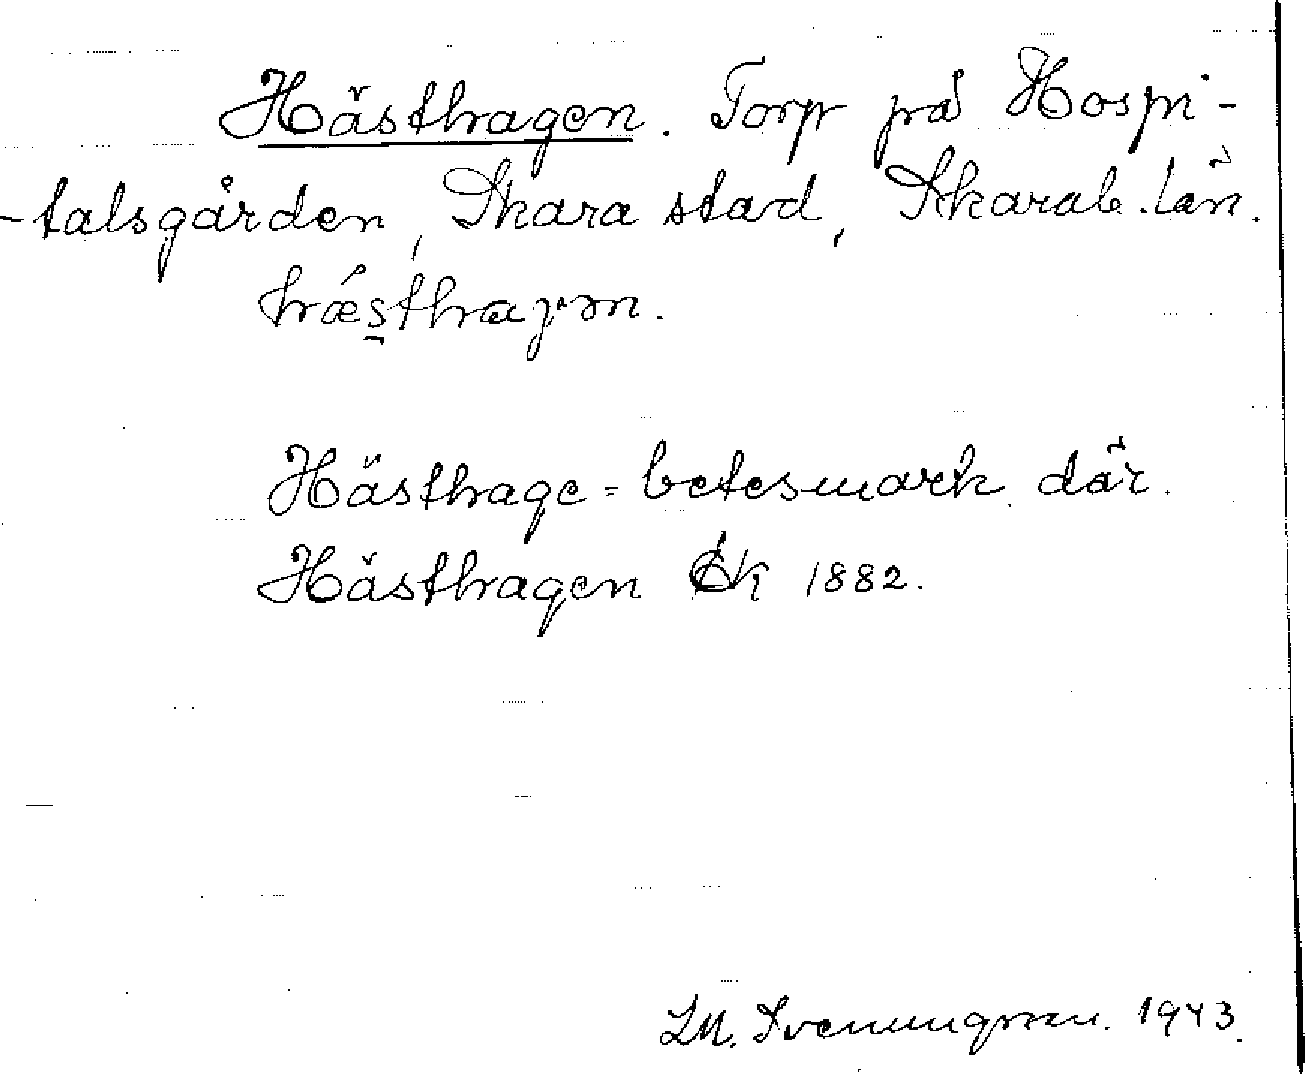 Hästhagen. Torp på Hospi-
-talsgården, Skara stad, Skarab. län.
Hästhage = betesmark där.
Hästhagen EK 1882.
LM. Svenungsson. 1943.